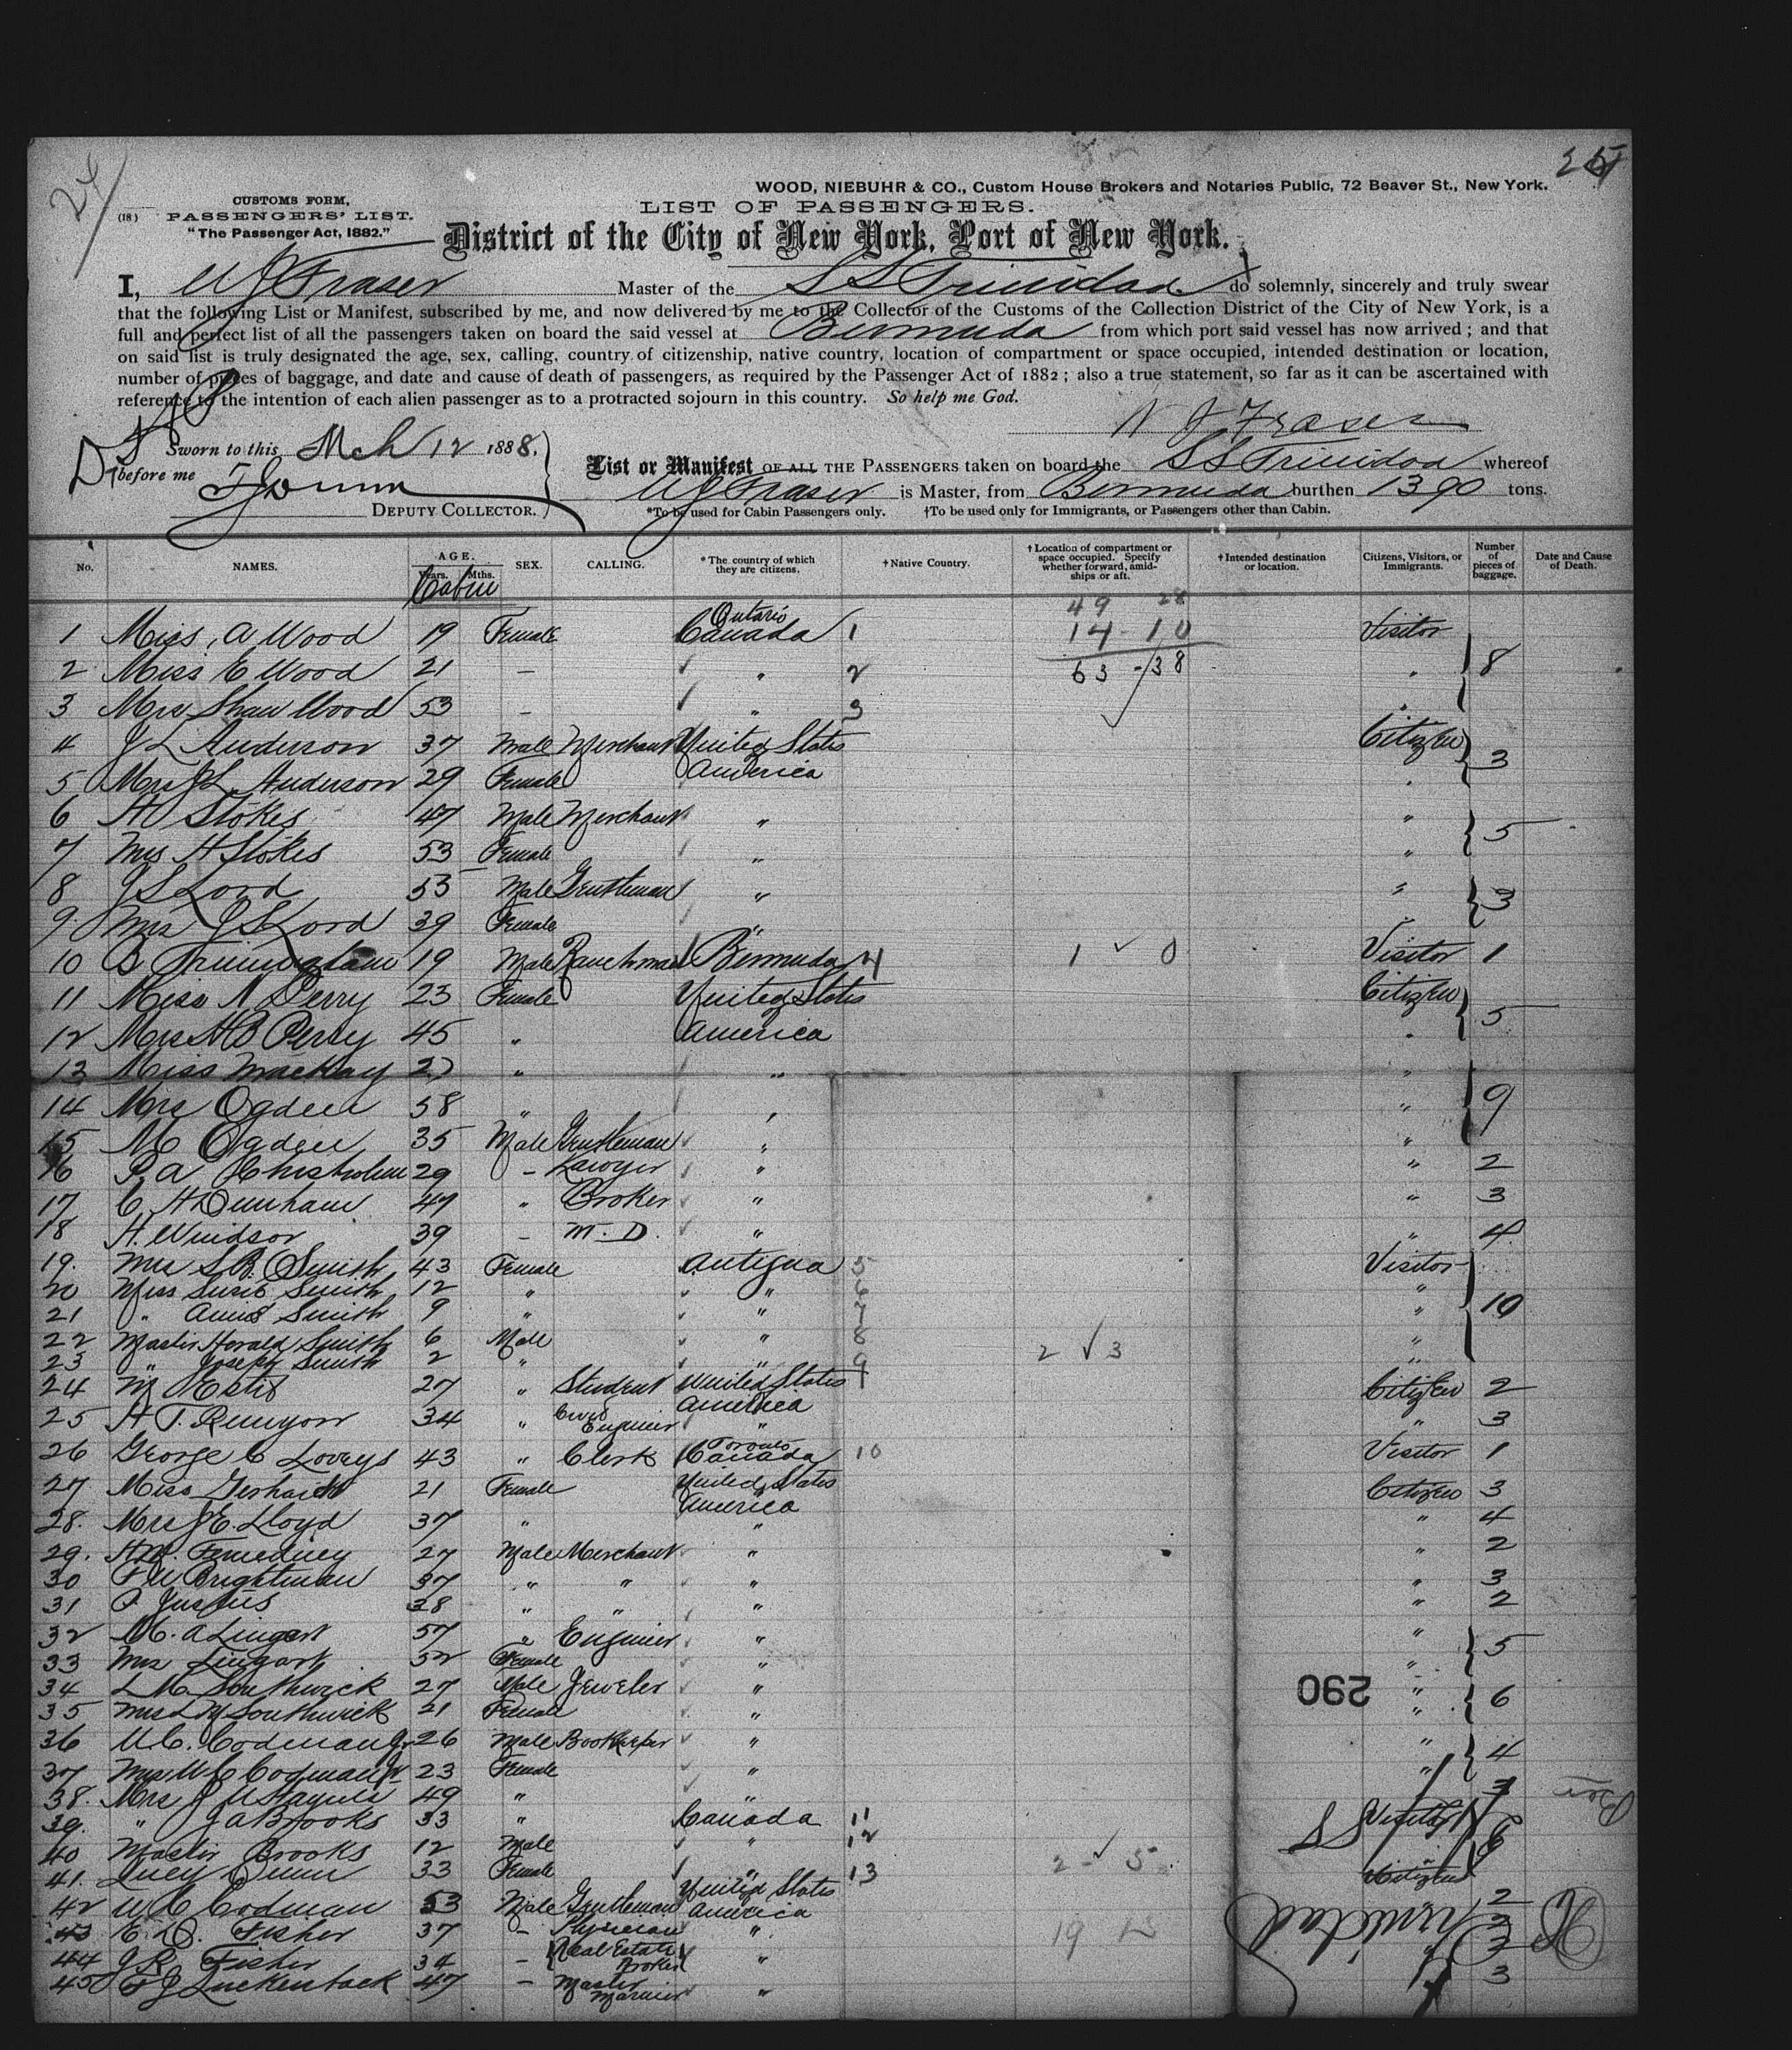 24
25
WOOD, NIEBUHR & CO., Custom House Brokers and Notaries Public, 72 Beaver St., New York.
CUSTOMS FORM,
(18) PASSENGERS' LIST.
"The Passenger Act, 1882."
LIST OF PASSENGERS.
District of the City of New York, Port of New York.
I, W J Fraser Master of the S S Trinidad do solemnly, sincerely and truly swear
that the following List or Manifest, subscribed by me, and now delivered by me to the Collector of the Customs of the Collection District of the City of New York, is a
full and perfect list of all the passengers taken on board the said vessel at Bermuda from which port said vessel has now arrived ; and that
on said list is truly designated the age, sex, calling, country of citizenship, native country, location of compartment or space occupied, intended destination or location,
number of pieces of baggage, and date and cause of death of passengers, as required by the Passenger Act of 1882 ; also a true statement, so far as it can be ascertained with
reference to the intention of each alien passenger as to a protracted sojourn in this country. So help me God.
W J Fraser
Sworn to this Mch 12 1888,
before me
DEPUTY COLLECTOR.
List or Manifest OF ALL THE PASSENGERS taken on board the S S Trinidad whereof
W J Fraser is Master, from Bermuda burthen 1390 tons.
*To be used for Cabin Passengers only. †To be used only for Immigrants, or Passengers other than Cabin.
No. NAMES. AGE. Years. Mths. SEX. CALLING. *The country of which they are citizens. †Native Country. †Location of compartment or space occupied. Specify whether forward, amidships or aft. †Intended destination or location. Citizens, Visitors, or Immigrants. Number of pieces of baggage. Date and Cause of Death.
Cabin
49 28
1 Miss A Wood 19 Female Ontario Canada 1 14 - 10 Visitor
2 Miss E Wood 21 - " 2 63 - 38 " 8
3 Mrs Shaw Wood 53 - " 3 "
4 J L Anderson 37 Male Merchant United States Citizen 3
5 Mrs J L Anderson 29 Female America "
6 H Stokes 47 Male Merchant " " 5
7 Mrs H Stokes 53 Female " "
8 J S Lord 55 Male Gentleman " " 3
9 Mrs J S Lord 39 Female " "
10 B Trimingham 19 Male Ranchman Bermuda 4 1 0 Visitor 1
11 Miss N Perry 23 Female United States Citizen 5
12 Mrs H B Perry 45 " America "
13 Miss Mackay 27 " " "
14 Mrs Ogden 58 " " " 9
15 M Ogden 35 Male Gentleman " "
16 P. A Chisholm 29 - Lawyer " " 2
17 C H Dunham 47 " Broker " " 3
18 H. Windsor 39 - M. D. " " 4
19. Mrs S B. Smith 43 Female Antigua 5 Visitor
20 Miss Susie Smith 12 " " 6 "
21 " Annie Smith 9 " " 7 " 10
22 Master Harold Smith 6 Male " 8 "
23 " Joseph Smith 2 " " 9 2 3 "
24 M Estes 27 " Student United States Citizen 2
America
25 H T. Runyon 34 " Civil Engineer " " 3
26 George C Loveys 43 " Clerk Toronto Canada 10 Visitor 1
27 Miss Gerhard 21 Female United States Citizen 3
America
28. Mrs J E. Lloyd 37 " " " 4
29. H. M. 27 Male Merchant " " 2
30 F W Brightman 37 " " " " 3
31 P. Justus 38 " " " " 2
32 M. A Lingart 57 " Engineer " "
33 Mrs Lingart 52 Female " " 5
34 L M Southwick 27 Male Jeweler " "
35 Mrs L M Southwick 21 Female " " 6
290
36 W. C. Codman Jr 26 Male Bookkeeper " "
37 Mrs W C Codman Jr 23 Female " " 4
38. Mrs J 49 " " 3
39. " J A Brooks 33 " Canada 11 Visitor
40 Master Brooks 12 Male " 12
41. Lucy Dunn 33 Female " 13 2 - 5 "
42 W C Codman 53 Male Gentleman United States America Citizen 2
43 E. D. Fisher 37 - Physician " 19 12
44 J R Fisher 34 - Real Estate Broker "
45 F J Luckenback 47 - Master Mariner " 3
S S Trinidad